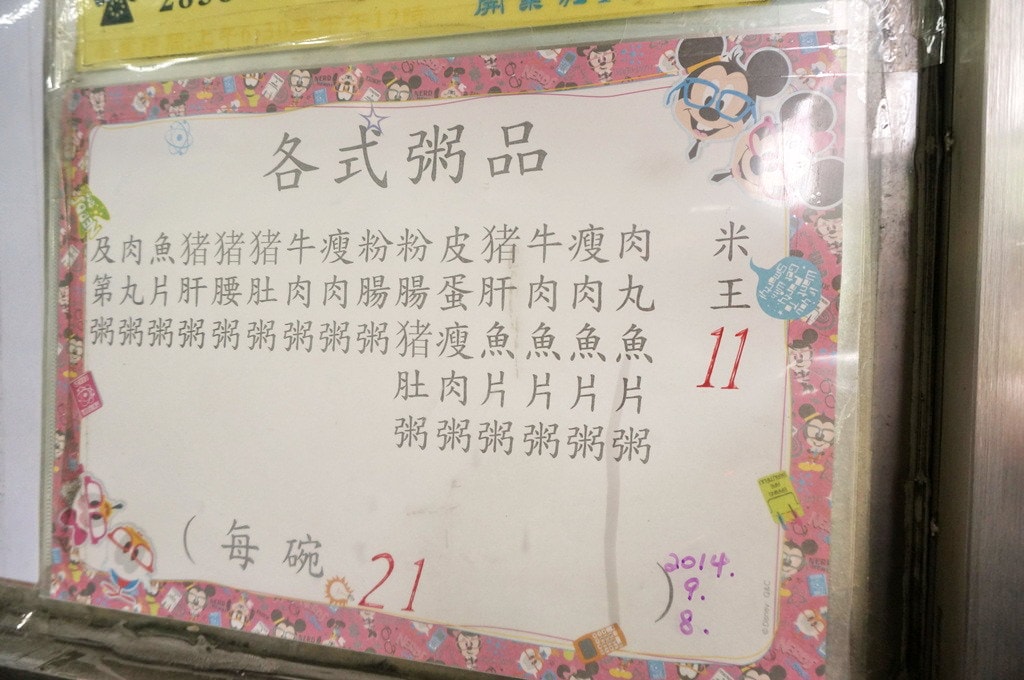 各式粥品
米王 11
肉丸魚片粥
瘦肉魚片粥
牛肉魚片粥
猪肝魚片粥
皮蛋瘦肉粥
粉腸猪肚粥
粉腸粥
瘦肉粥
牛肉粥
猪肚粥
猪腰粥
猪肝粥
魚片粥
肉丸粥
及第粥
(每碗 21 )
2014.
9.
8.
© Disney